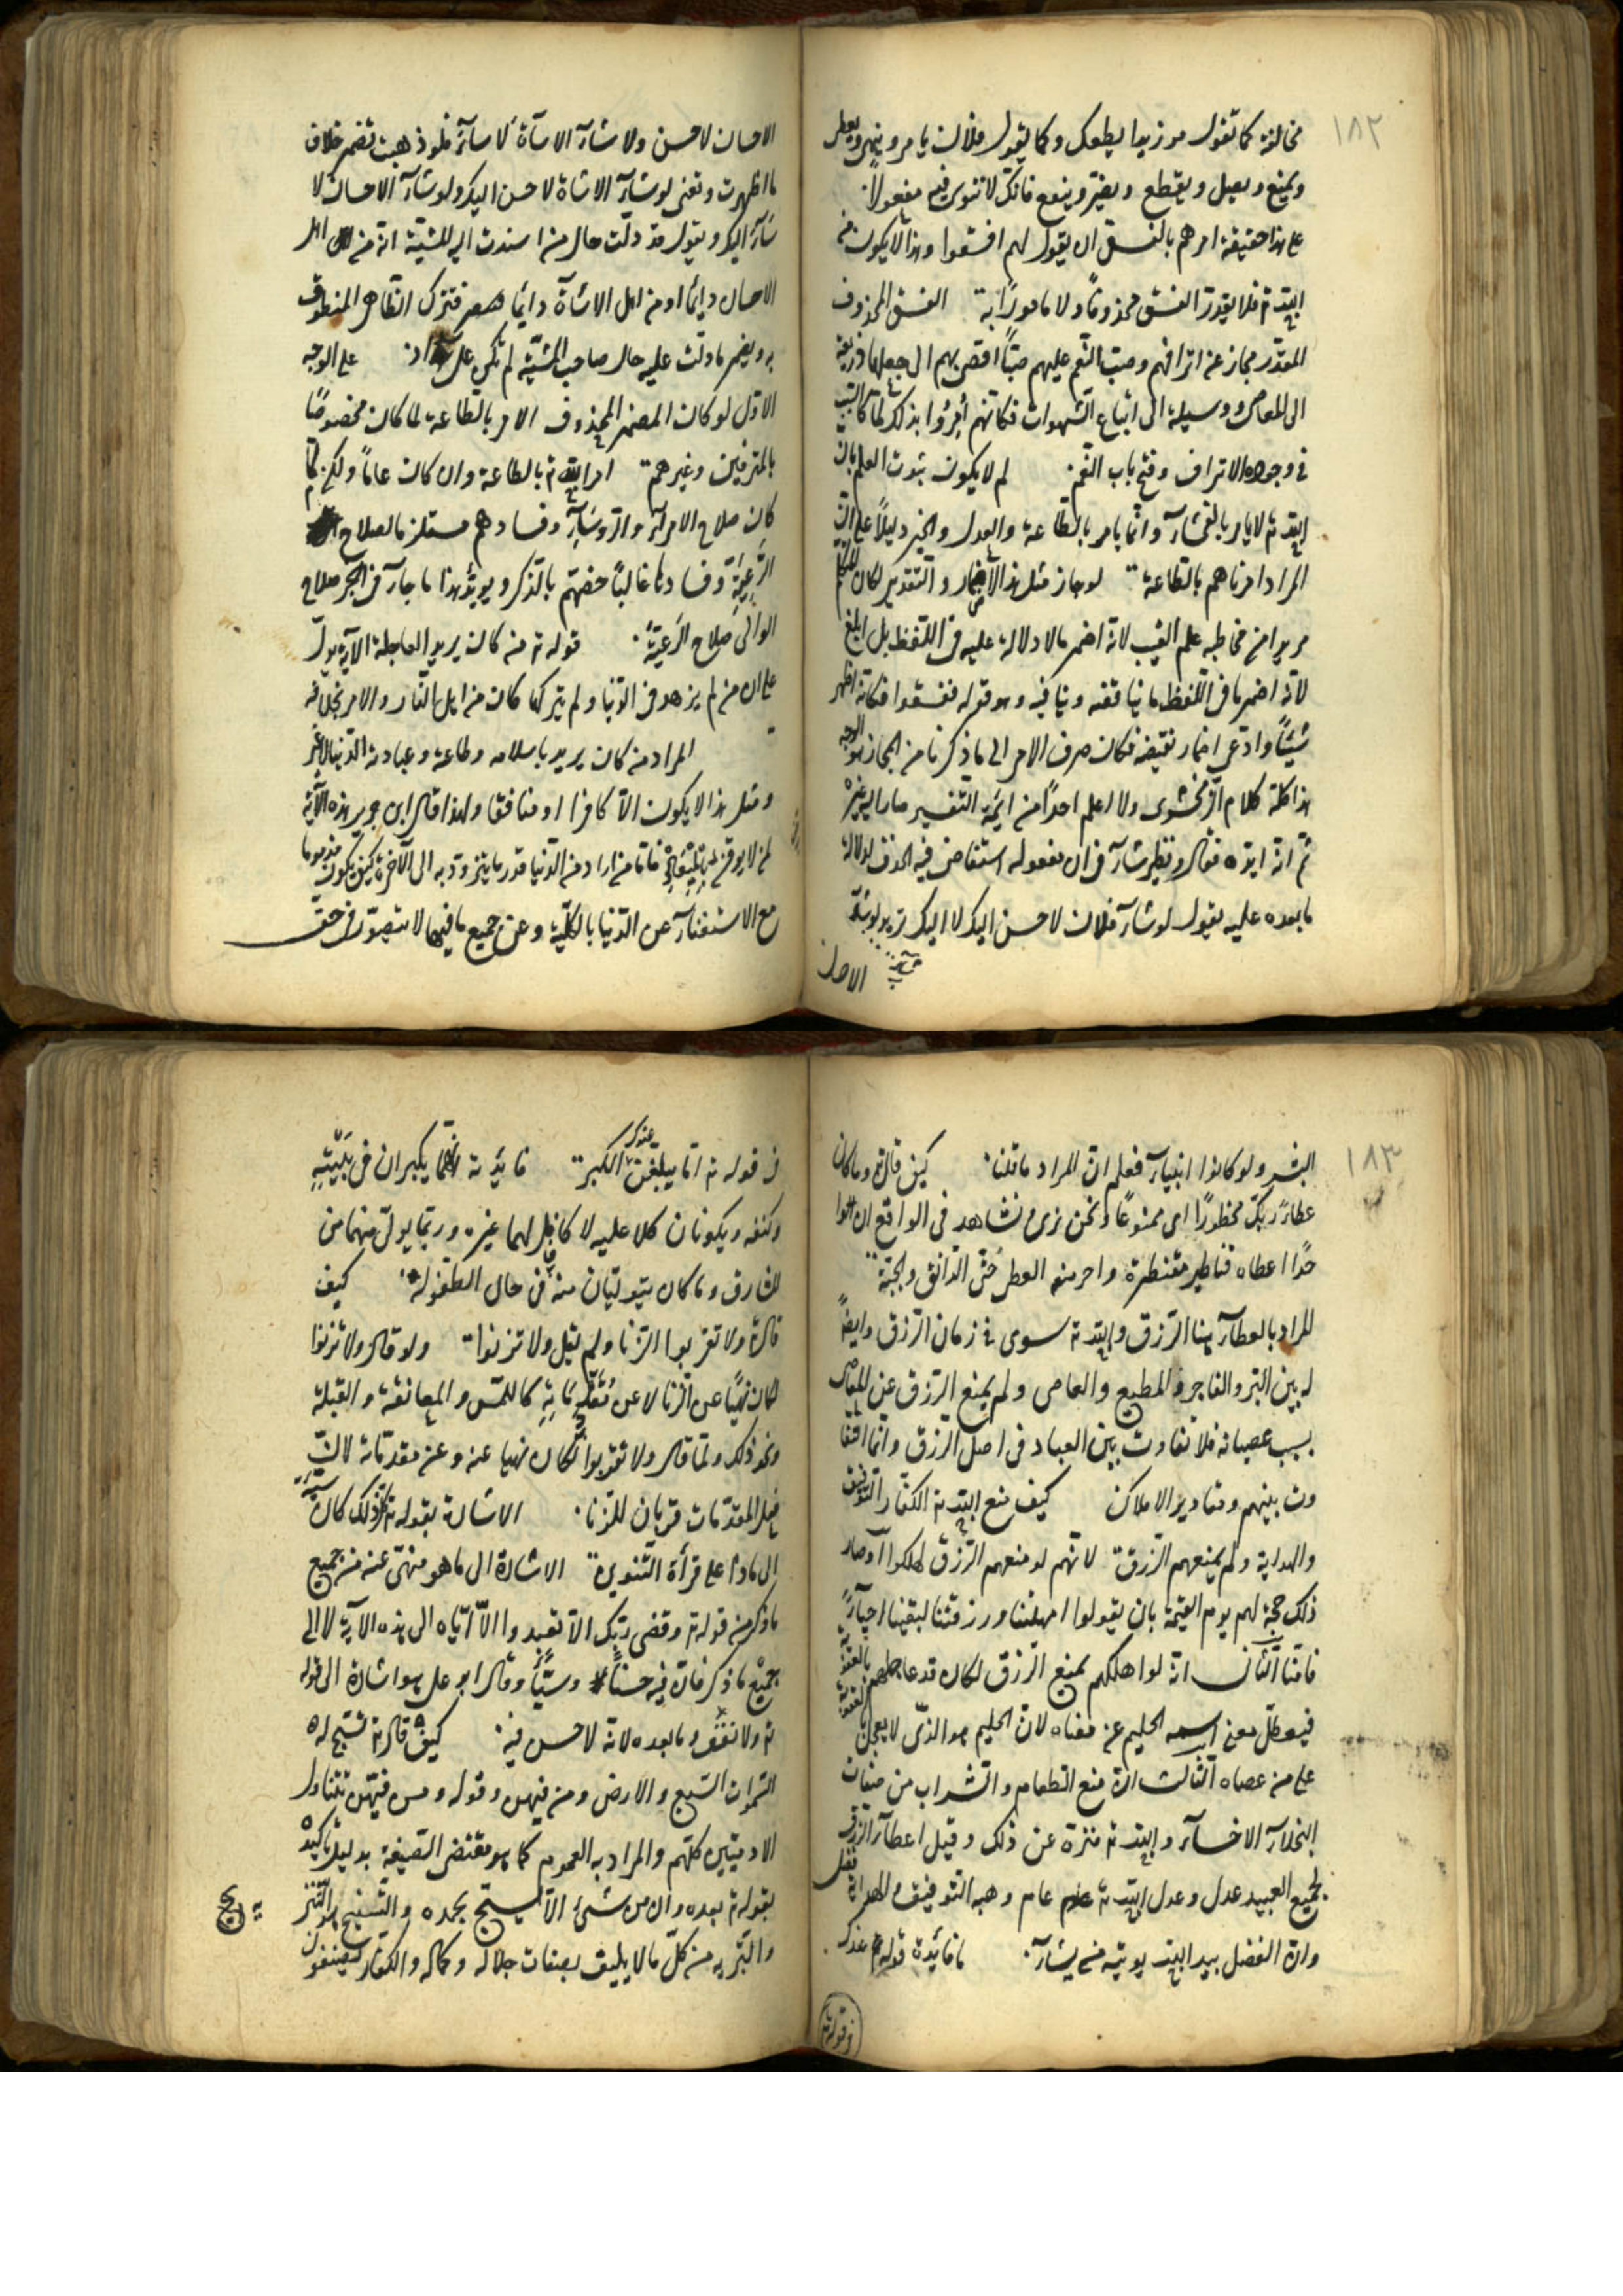 ١٨٢
مخالفة كما تقول مر زيدا يطعك وكما يقول فلان يامر وينهى ويعطى
ويمنع ويصل ويقطع ويضر وينفع فانك لا تنوى فيه مفعولا
على هذا حقيقة امرهم بالفسق ان يقول لهم افسقوا وهذا لا يكون من
الله تع فلا يقدر الفسق محذوفا ولا مامورا به الفسق المحذوف
المقدر مجاز عن اترافهم وصب النعم عليهم صبا افضى بهم الى جعلها ذريعة
الى المعاصى ووسيلة الى اتباع الشهوات فكانهم أمروا بذلك لما كان السبب
فى وجوده الاتراف وفتح باب النعم لم لا يكون ثبوت العلم بان
الله تع لا يامر بالفحشاء وانما يامر بالطاعة والعدل والخير دليلا على ان
المراد امرناهم بالطاعة لو جاز مثل هذا الاضمار والتقدير لكان المتكلم
مريدا من مخاطبه علم الغيب لانه اضمر ما لا دلالة عليه فى اللفظ بل ابلغ
لانه اضمر ما فى اللفظ ما يناقضه وينافيه وهو قوله ففسقوا فكانه اظهر
شيئا وادعى اضمار نقيضه فكان صرف الامر الى ما ذكرنا من المجاز هو الوجه
هذا كله كلام الزمخشرى ولا اعلم احدا من ايمة التفسير صار اليه غيره
ثم انه ايده فقال ونظير شاء فى ان مفعوله استفاض فيه الحذف لدلالة
ما بعده عليه يقول لو شاء فلان لاحسن اليك لاساء اليك تريد لو شاء
الاحسان
الاحسان لاحسن ولو شاء الاساءة لاساء فلو ذهبت تضمر خلاف
ما اظهرت وتعنى لو شاء الاساءة لاحسن اليك ولو شاء الاحسان لا
ساء اليك ويقول قد دلت حال من اسندت اليه المشية انه من اهل
الاحسان دايما او من اهل الاساءة دايما فتترك الظاهر المنطوق
به ويضمر ما دلت عليه حال صاحب المشية لم تكن على سداد على الوجه
الاول لو كان المضمر المحذوف الامر بالطاعة لما كان مخصوصا
بالمترفين وغيرهم امر الله تع بالطاعة وان كان عاما ولكن لما
كان صلاح الامراء والروساء وفسادهم مستلزما لصلاح
الرعية وفسادها غالبا خصهم بالذكر ويويد هذا ما جاء فى الخبر صلاح
الوالى صلاح الرعية قوله تع من كان يريد العاجلة الآية يدل
على ان من لم يزهد فى الدنيا ولم يتركها كان من اهل النار والامر بخلافه
المراد من كان يريد باسلامه وطاعته وعبادته الدنيا لا غير
ومثل هذا لا يكون الا كافرا او منافقا ولهذا قال ابن جرير هذه الآية
لمن لا يوقن بالمعاد فاما من اراد من الدنيا قدر ما يتزود به الى الآخرة كيف يكون مذموما
مع الاستغناء عن الدنيا بالكلية وعن جميع ما فيها لا يتصور فى حق
١٨٣
البشر ولو كانوا انبياء فعلم ان المراد ما قلنا كيف قال تع وما كان
عطاء ربك محظورا اى ممنوعا ونحن نرى ونشاهد فى الواقع ان
حدا اعطاه قناطير مقنطرة واخر منعه العطاء حتى الدانق والحبة
المراد بالعطاء هنا الرزق والله تع سوى فى زمان الرزق وايصا
له بين البر والفاجر والمطيع والعاصى ولم يمنع الرزق عن العاصى
بسبب عصيانه فلا تفاوت بين العباد فى اصل الرزق وانما التفا
وت بينهم ومقادير الاملاك كيف منع الله تع الكفار التوفيق
والهداية ولم يمنعهم الرزق لانهم لو منعهم الرزق لهلكوا وصار
ذلك حجة لهم يوم القيمة بان يقولوا امهلتنا ورزقتنا لبقينا احياء
فامنا الثانى انه لو اهلكهم بمنع الرزق لكان قد عاجلهم بالعقوبة
فيعطل معنى اسمه الحليم عن معناه لان الحليم هو الذى لا يعجل بالعقوبة
على من عصاه الثالث ان منع الطعام والشراب من صفات
البخلاء الاخساء والله تع منزه عن ذلك وقيل اعطاء الرزق
لجميع العبيد عدل وعدل الله تع عام وهبة التوفيق والهداية فضل
وان الفضل بيد الله يوتيه من يشاء ما فايدة قوله عندك
فى قوله تع
فى قوله تع اما يبلغن عندك الكبر فايدته انهما يكبران فى بيته
وكنفه ويكونان كلا عليه لا كافل لهما غيره وربما يولى منهما من
المشارق وما كان يتوليان منه فى حال الطفولة كيف
قال تع ولا تقربوا الزنا ولم يقل ولا تزنوا ولو قال ولا تزنوا
لكان نهيا عن الزنا لا عن مقدماته كاللمس والمعانقة والقبلة
ونحو ذلك ولما قال ولا تقربوا لكان نهيا عنه وعن مقدماته لان
فعل المقدمات قربان للزنا الاشارة بقوله تع كل ذلك كان سيئة
الى ماذا على قراءة التنوين الاشارة الى ما هو منهى عنه من جميع
ما ذكر من قوله تع وقضى ربك الا تعبدوا الا اياه الى هذه الآية لا الى
جميع ما ذكر فان فيه حسنا وسيئا وقال ابو على هو اشارة الى قوله
تع ولا تقف وما بعده لانه لا حسن فيه كيف قال تع تسبح له
السموات السبع والارض ومن فيهن وقوله ومن فيهن تتناول
الادميين كلهم والمراد به العموم كما هو مقتضى الصيغة بدليل تاكيده
بقوله تع بعده وان من شىء الا يسبح بحمده والتسبيح هو التنزيه
والتبريه من كل ما لا يليق بصفات جلاله وكماله والكفار يصفون